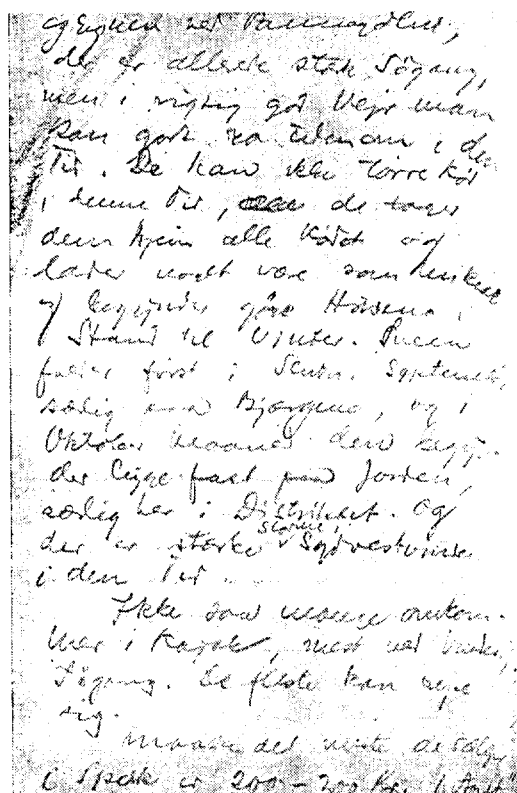 der er allerede stærk Søgang,
men i rigtig god Vejr man
kan godt ro i den
Tid. De kan ikke tørre Kød
i denne Tid, de tager
dem hjem alle Kødet og
lader noget være som
og begynder gøre Husene i
Stand til Vinter. Sneen
falder først i Slutn. Septemb.,
særlig paa Bjærgene, og i
Oktober Maaned den begyn-
der ligge fast paa Jorden,
særlig her i Distriktet. Og
der er stærke storme i Sydvestvinde
i den Tid.
Ikke saa mange omkom-
mer i Kajak, mest ved
Søgang. De fleste kan rejse
sig.
Maaske det meste de
i Spæk er 200 - 300 Kr. i